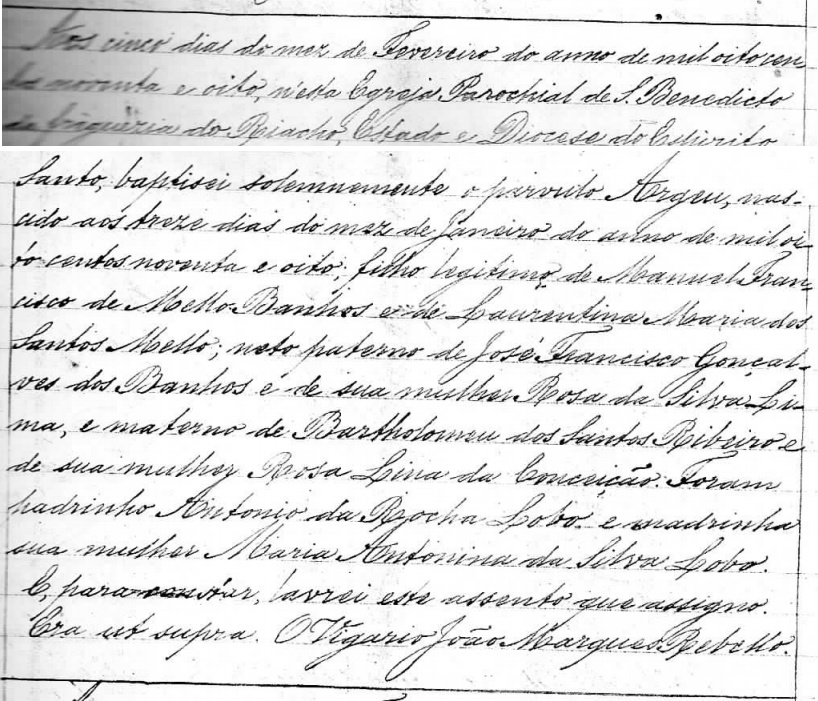 Aos cinco dias do mez de Fevereiro do anno de mil oito cen-
tos noventa e oito, n'esta Egreja Parochial de S. Benedicto
da friguezia do Riacho, Estado e Diocese do Espirito
Santo, baptisei solemnemente o parvulo Argeu, nas-
cido aos treze dias do mez de Janeiro do anno de mil oi-
to centos noventa e oito; filho legitimo de Manuel Fran-
cisco de Mello Banhos e de Laurentina Maria dos
Santos Mello; neto paterno de José Francisco Gonçal-
ves dos Banhos e de sua mulher Rosa da Silva Li-
ma, e materno de Bartholomeu dos Santos Ribeiro e
de sua mulher Rosa Lina da Conceição. Foram
padrinho Antonio da Rocha Lobo e madrinha
sua mulher Maria Antonina da Silva Lobo.
E, para constar, lavrei este assento que assigno.
Era ut supra. O Vigario João Marques Rebello.